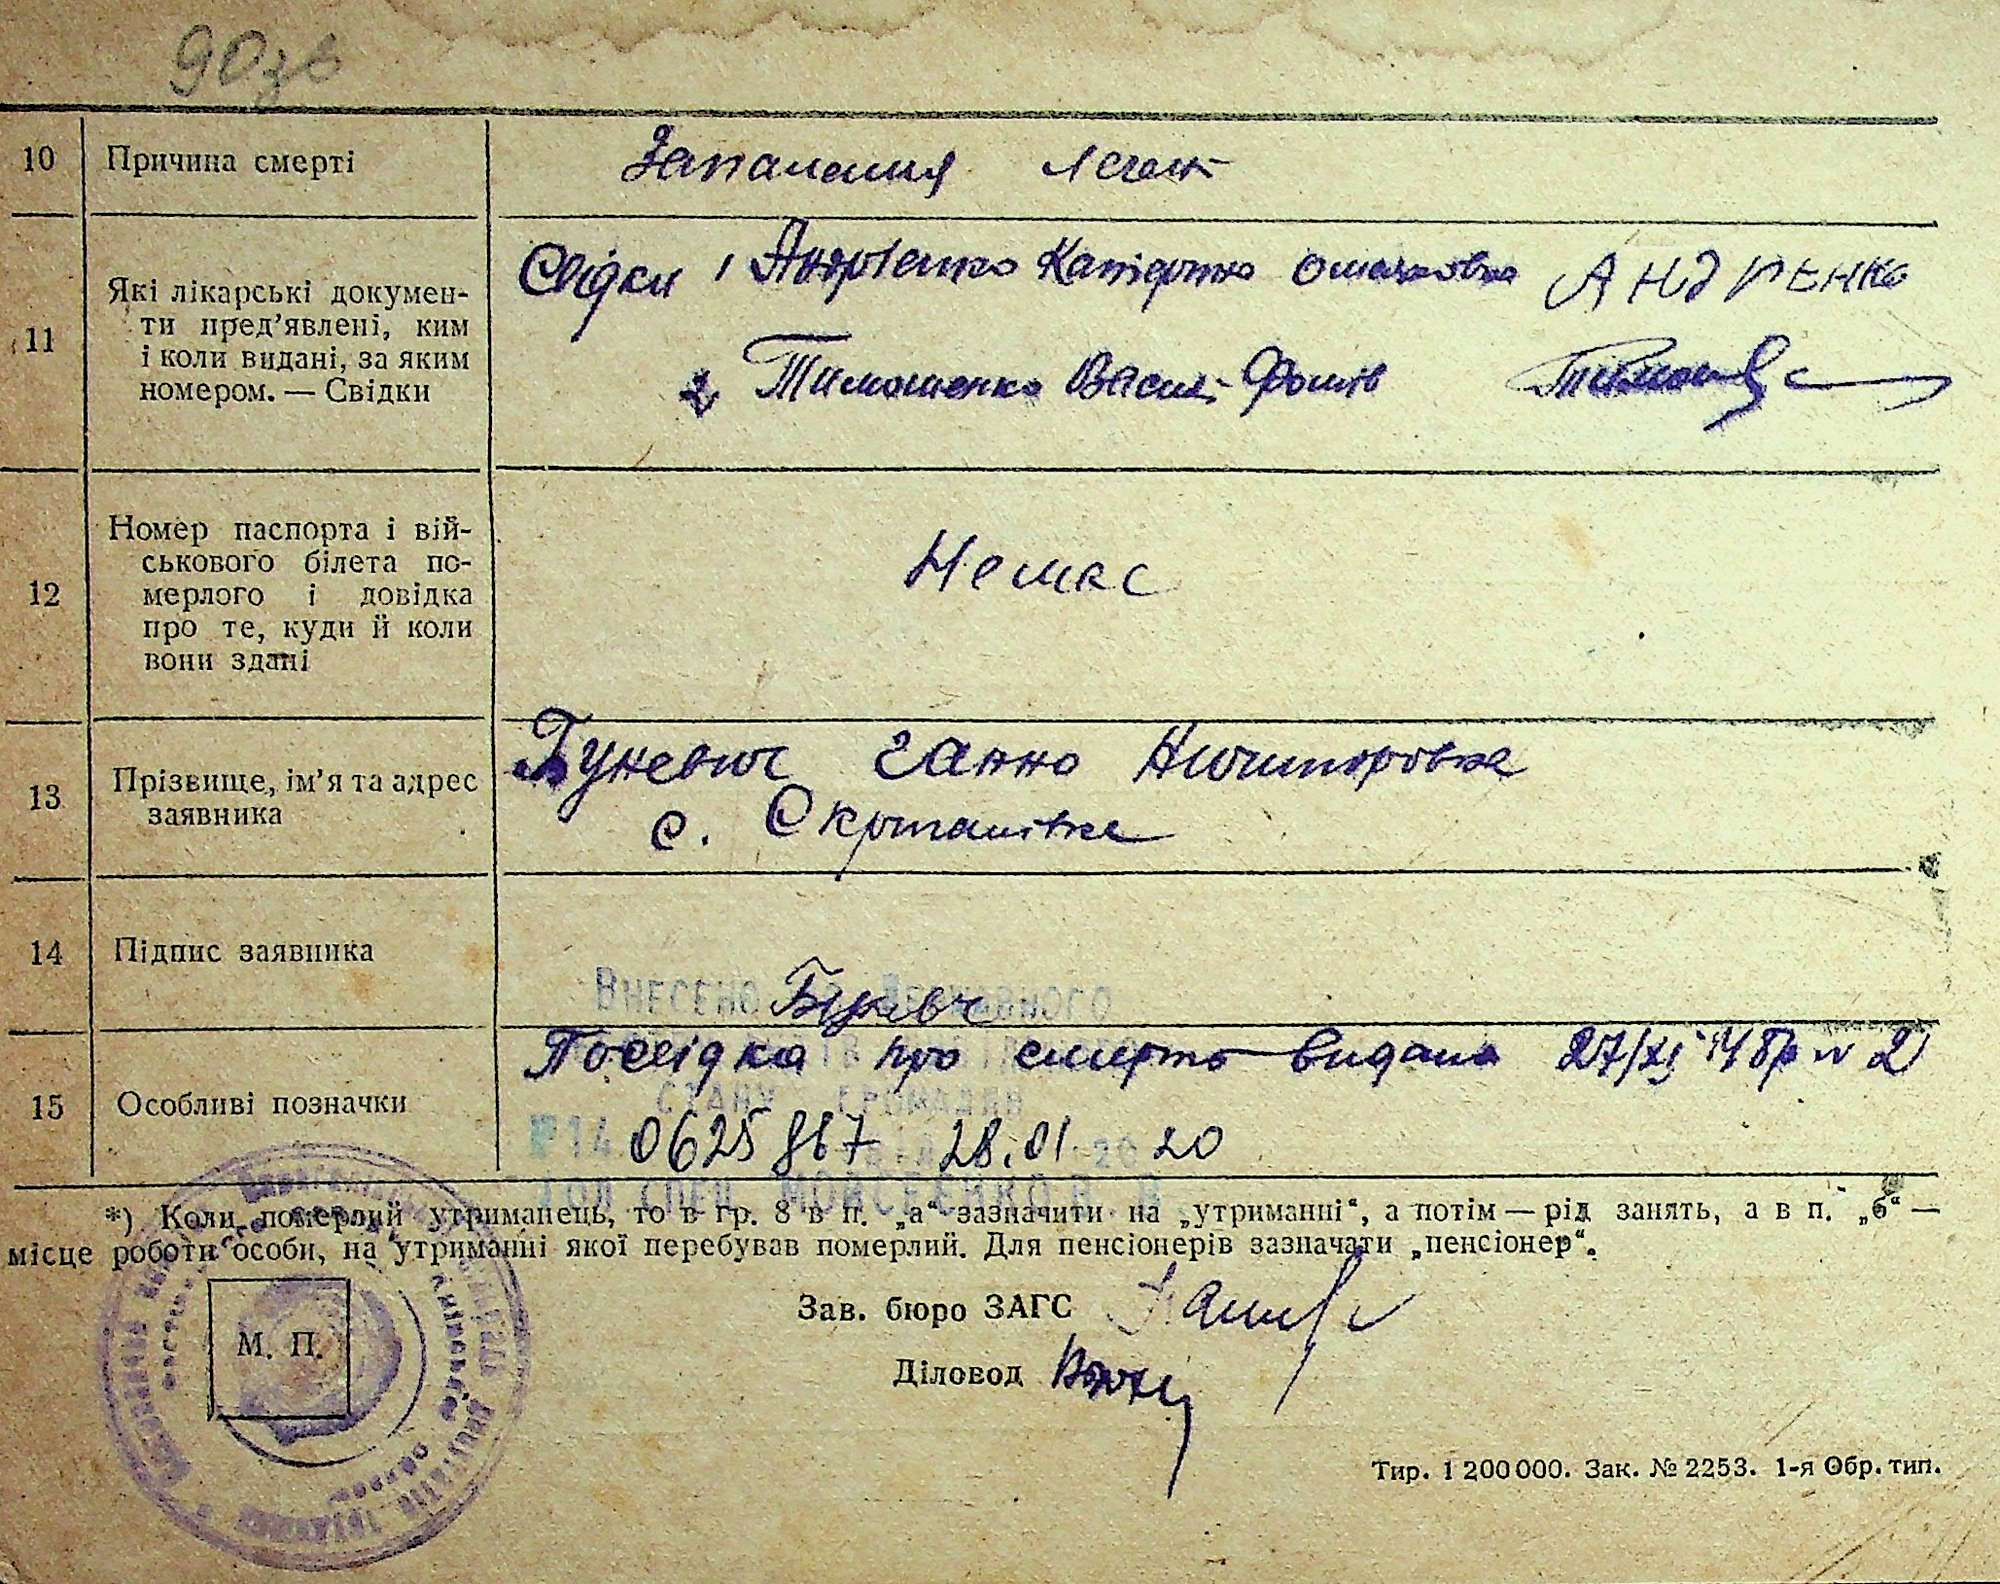 90зв
10 Причина смерті
Запалення легень
11 Які лікарські докумен-
ти пред’явлені, ким
і коли видані, за яким
номером. — Свідки
Свідки 1 Андрієнко Катерина АНДРІЕНКО
2 Тимошенко Василь
12 Номер паспорта і вій-
ськового білета по-
мерлого і довідка
про те, куди й коли
вони здані
Немає
13 Прізвище, ім’я та адрес
заявника
Ганна Ничипоровна
с.
14 Підпис заявника
15 Особливі позначки
Внесено до Державного
Посвідка про смерть видана 27/XI
стану громадян
№14 0625867 28.01 2020
Гол спец Мойсеєнко
*) Коли померлий утриманець, то в гр. 8 в п. „а“ зазначити на „утриманні“, а потім — рід занять, а в п. „б“ —
місце роботи особи, на утриманні якої перебував померлий. Для пенсіонерів зазначати „пенсіонер“.
М. П.
Зав. бюро ЗАГС
Діловод
Тир. 1 200 000. Зак. № 2253. 1-я Обр. тип.